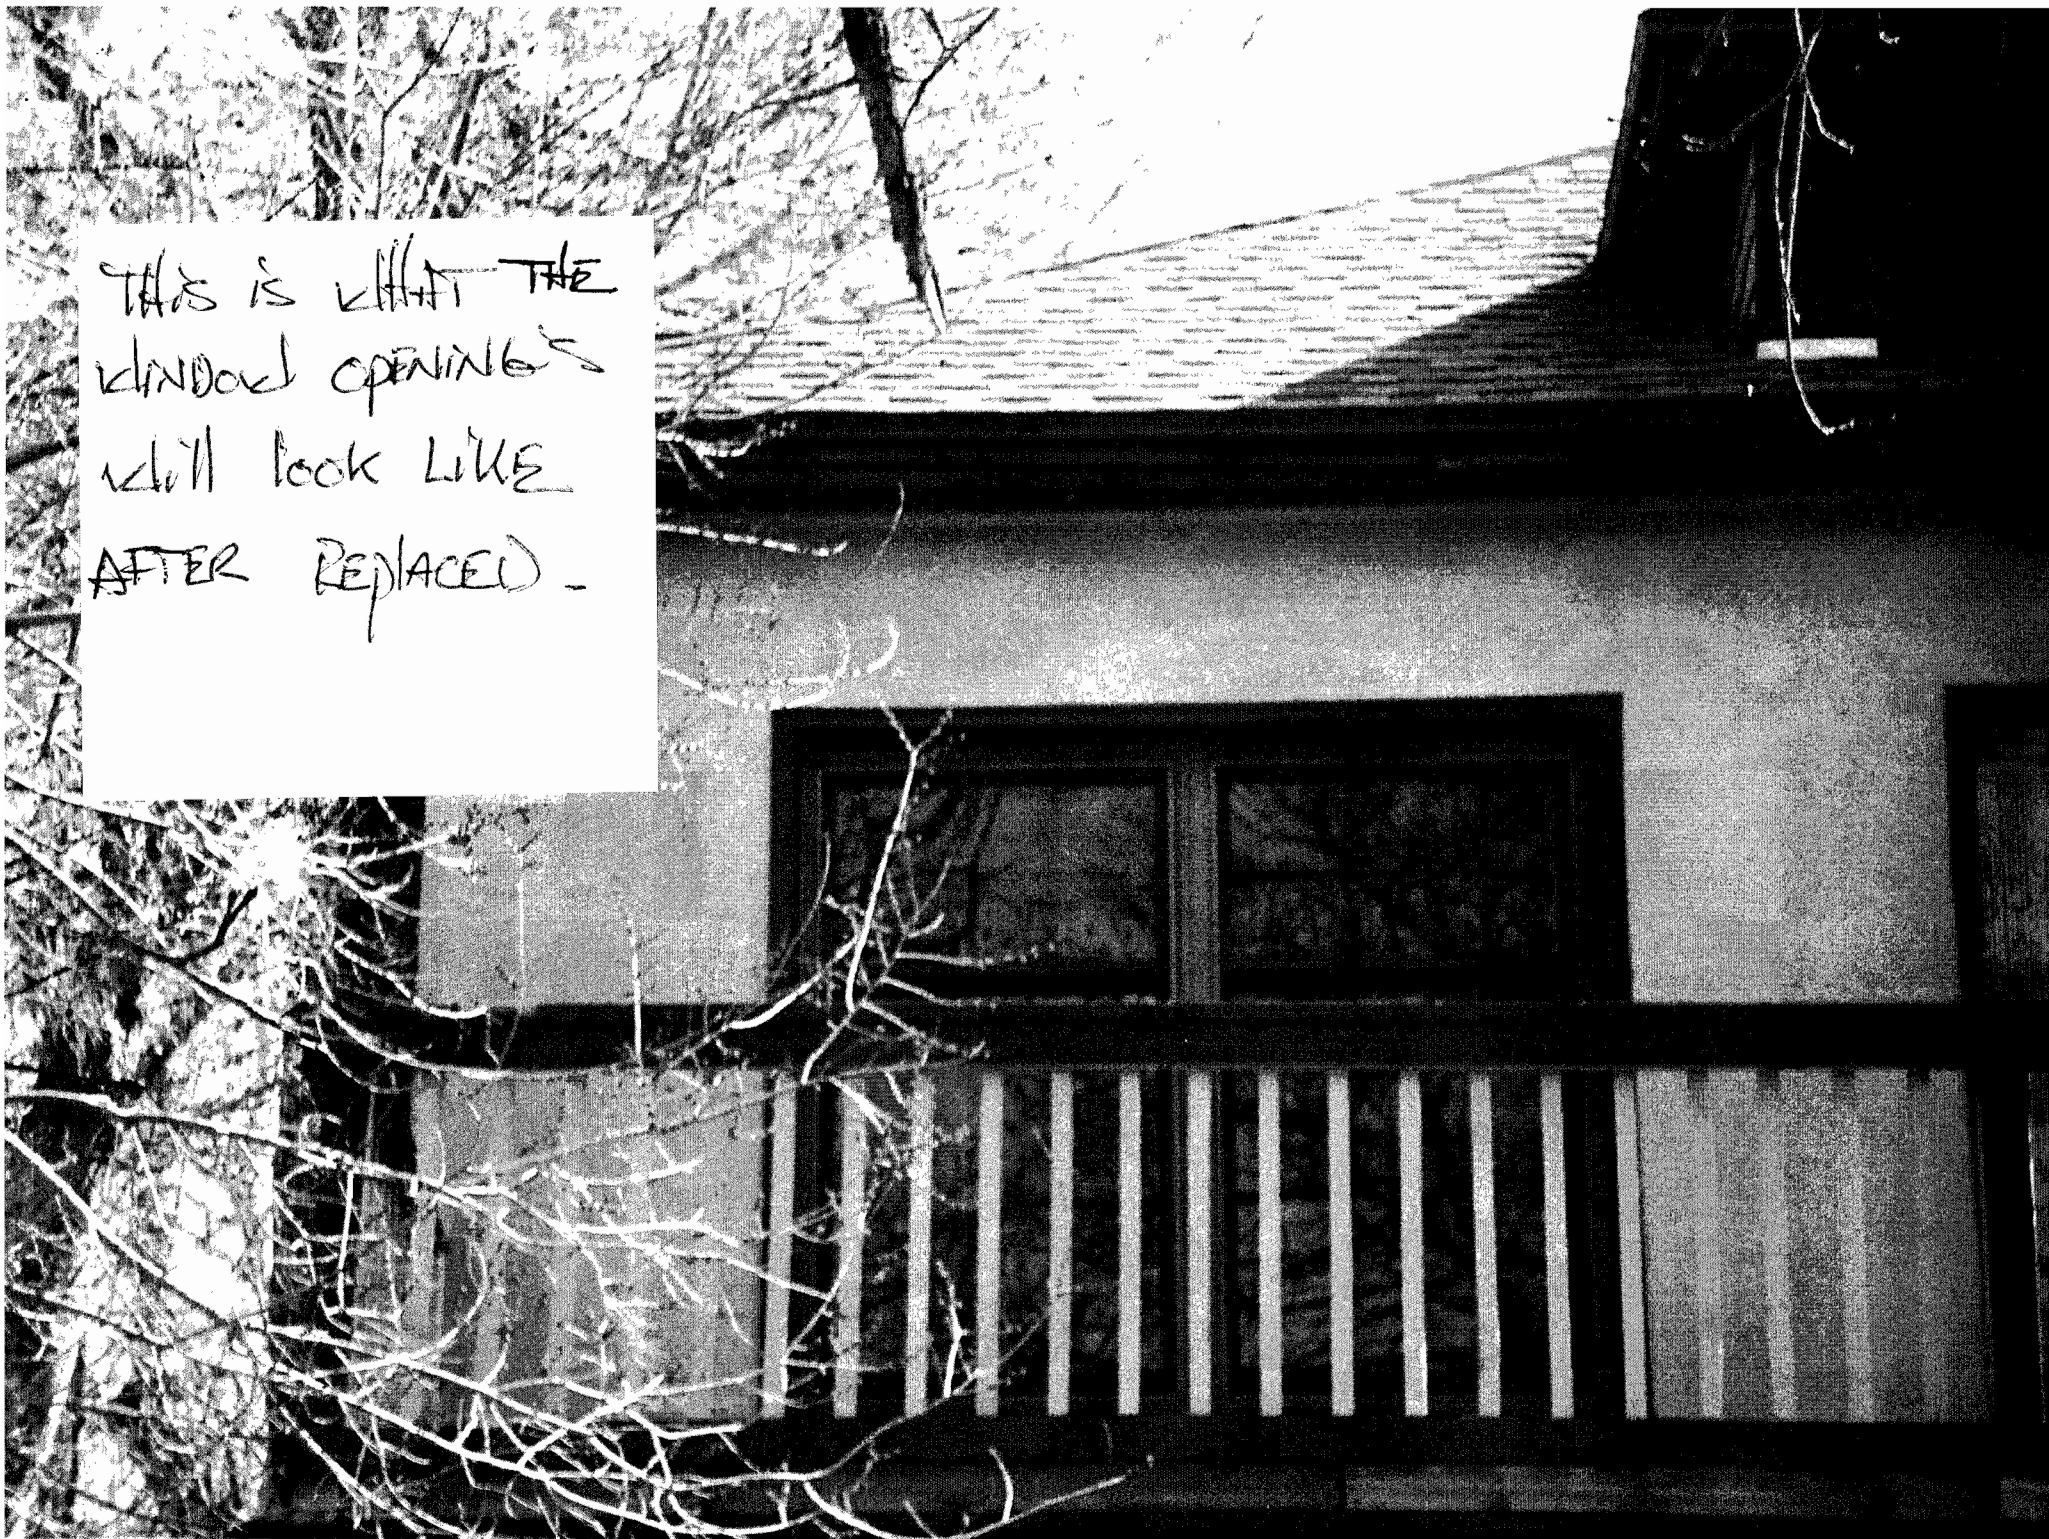 THis is WHAT THE
WINDOW OPENING'S
Will look LiKE
AFTER REplACED -